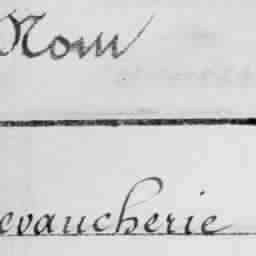 Nom
evaucherie